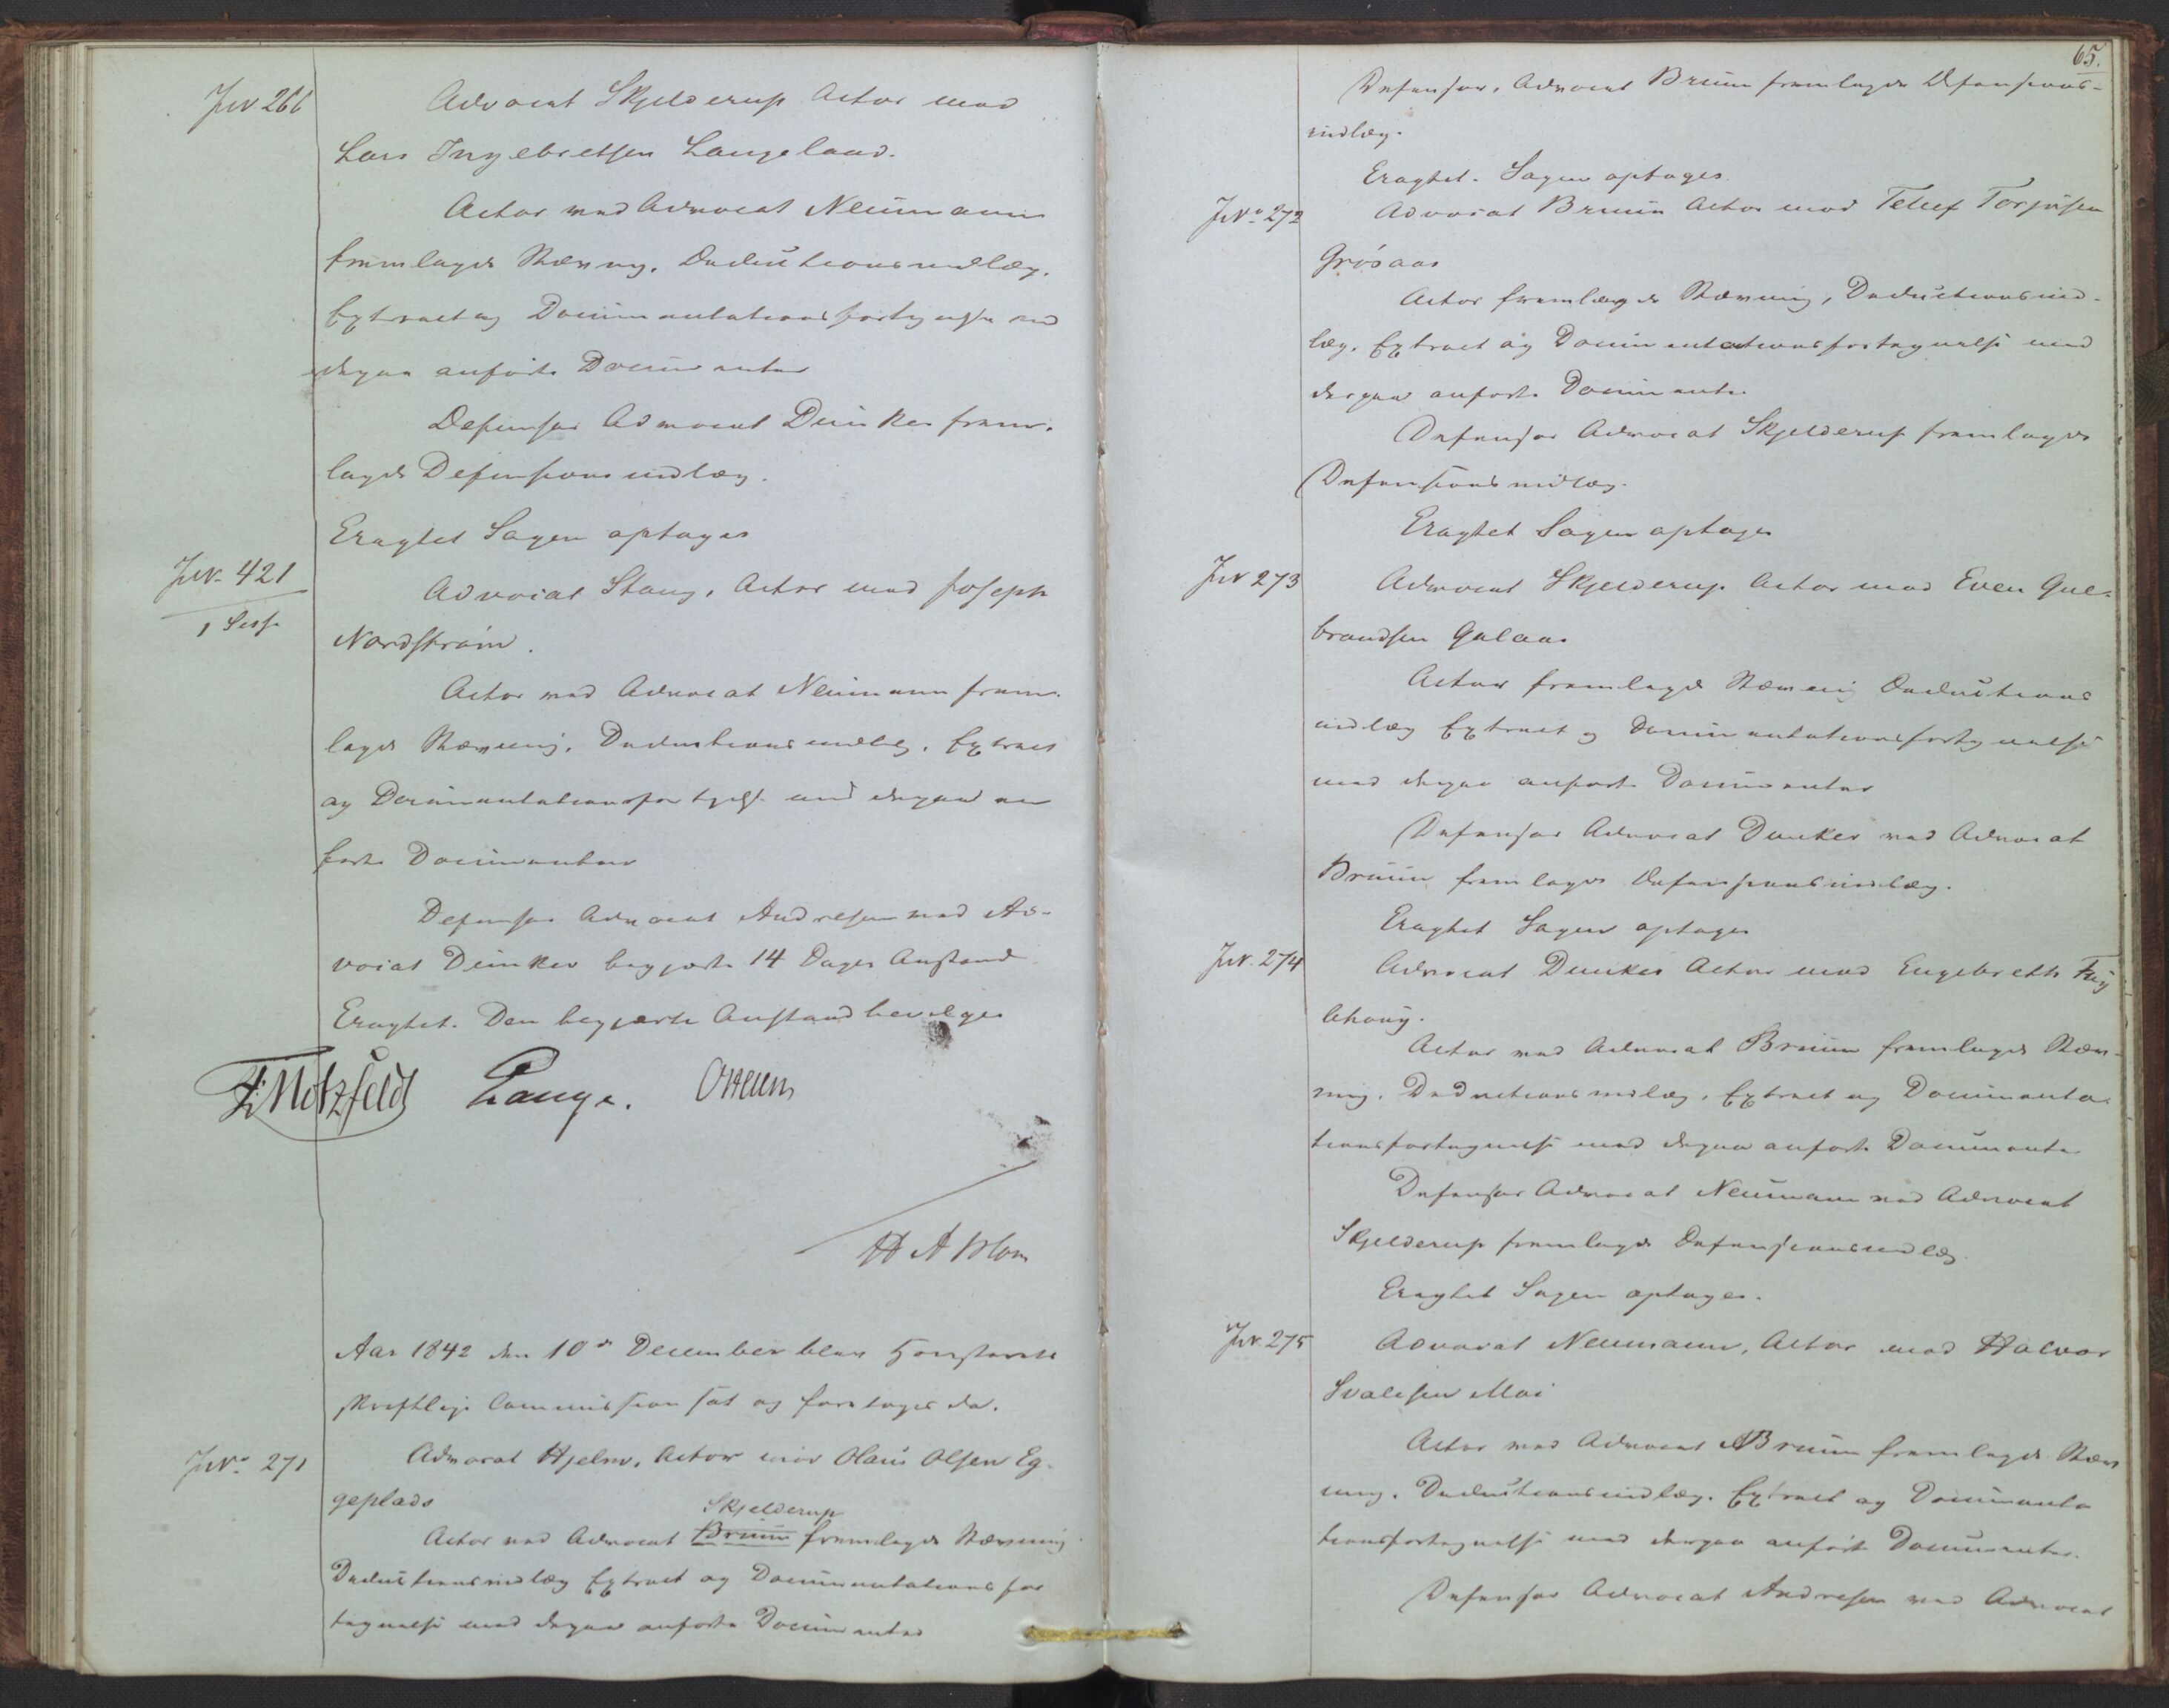 JNr 266
Advocat Skjelderup Actor mod
Lars Ingebretsen Langeland.
Actor ved Advocat Neumann
fremlagde Stævning, Deductionsindlæg,
Extract og Documentationsfortegnelse med
derpaa anførte Documenter
Defensor Advocat Dunker frem-
lagde Defensionsindlæg.
Eragtet Sagen optages
JNr. 421
1 Sess.
Advocat Stang, Actor mod Joseph
Nordstrøm.
Actor ved Advocat Neumann frem-
lagde Stævning, Deductionsindlæg, Extract
og Documentationsfortegnelse med derpaa an
førte Documenter
Defensor Advocat Andresen ved Ad-
vocat Dunker begjærte 14 Dages Anstand
Eragtet. Den begjærte Anstand bevilges
F. Motzfeldt Lange.
H A Blom
Aar 1842 den 10de December blev Høiesterets
skriftlige Commission sat og foretoges da.
JNr. 271
Advocat Hjelm, Actor mod Olaus Olsen Eg-
geplads
Skjelderup
Actor ved Advocat Bruun fremlagde Stævning
Deductionsindlæg Extract og Documentationsfor
tegnelse med derpaa anførte Documenter
65.
Defensor, Advocat Bruun fremlagde Defensions-
indlæg.
Eragtet. Sagen optages
JNr. 272
Advocat Bruun Actor mod Tellef Torjusen
Grøsaas
Actor fremlagde Stævning, Deductionsind-
læg, Extract og Documentationsfortegnelse med
derpaa anførte Documenter
Defensor Advocat Skjelderup fremlagde
Defensionsindlæg.
Eragtet Sagen optages
JNr 273
Advocat Skjelderup Actor mod Even Gul-
brandsen Galaas
Actor fremlagde Stævning Deductions
indlæg Extract og Documentationsfortegnelse
med derpaa anførte Documenter
Defensor Advocat Dunker ved Advocat
Bruun fremlagde Defensionsindlæg.
Eragtet Sagen optages
JNr. 274
Advocat Dunker Actor mod Engebreth
Actor ved Advocat Bruun fremlagde Stæv-
ning, Deductionsindlæg, Extract og Documenta-
tionsfortegnelse med derpaa anførte Documenter
Defensor Advocat Neumann ved Advocat
Skjelderup fremlagde Defensionsindlæg.
Eragtet Sagen optages.
JNr. 275
Advocat Neumann, Actor mod Halvor
Svalesen Moi
Actor ved Advocat Bruun fremlagde Stæv
ning, Deductionsindlæg, Extract og Documenta
tionsfortegnelse med derpaa anførte Documenter.
Defensor Advocat Andresen ved Advocat